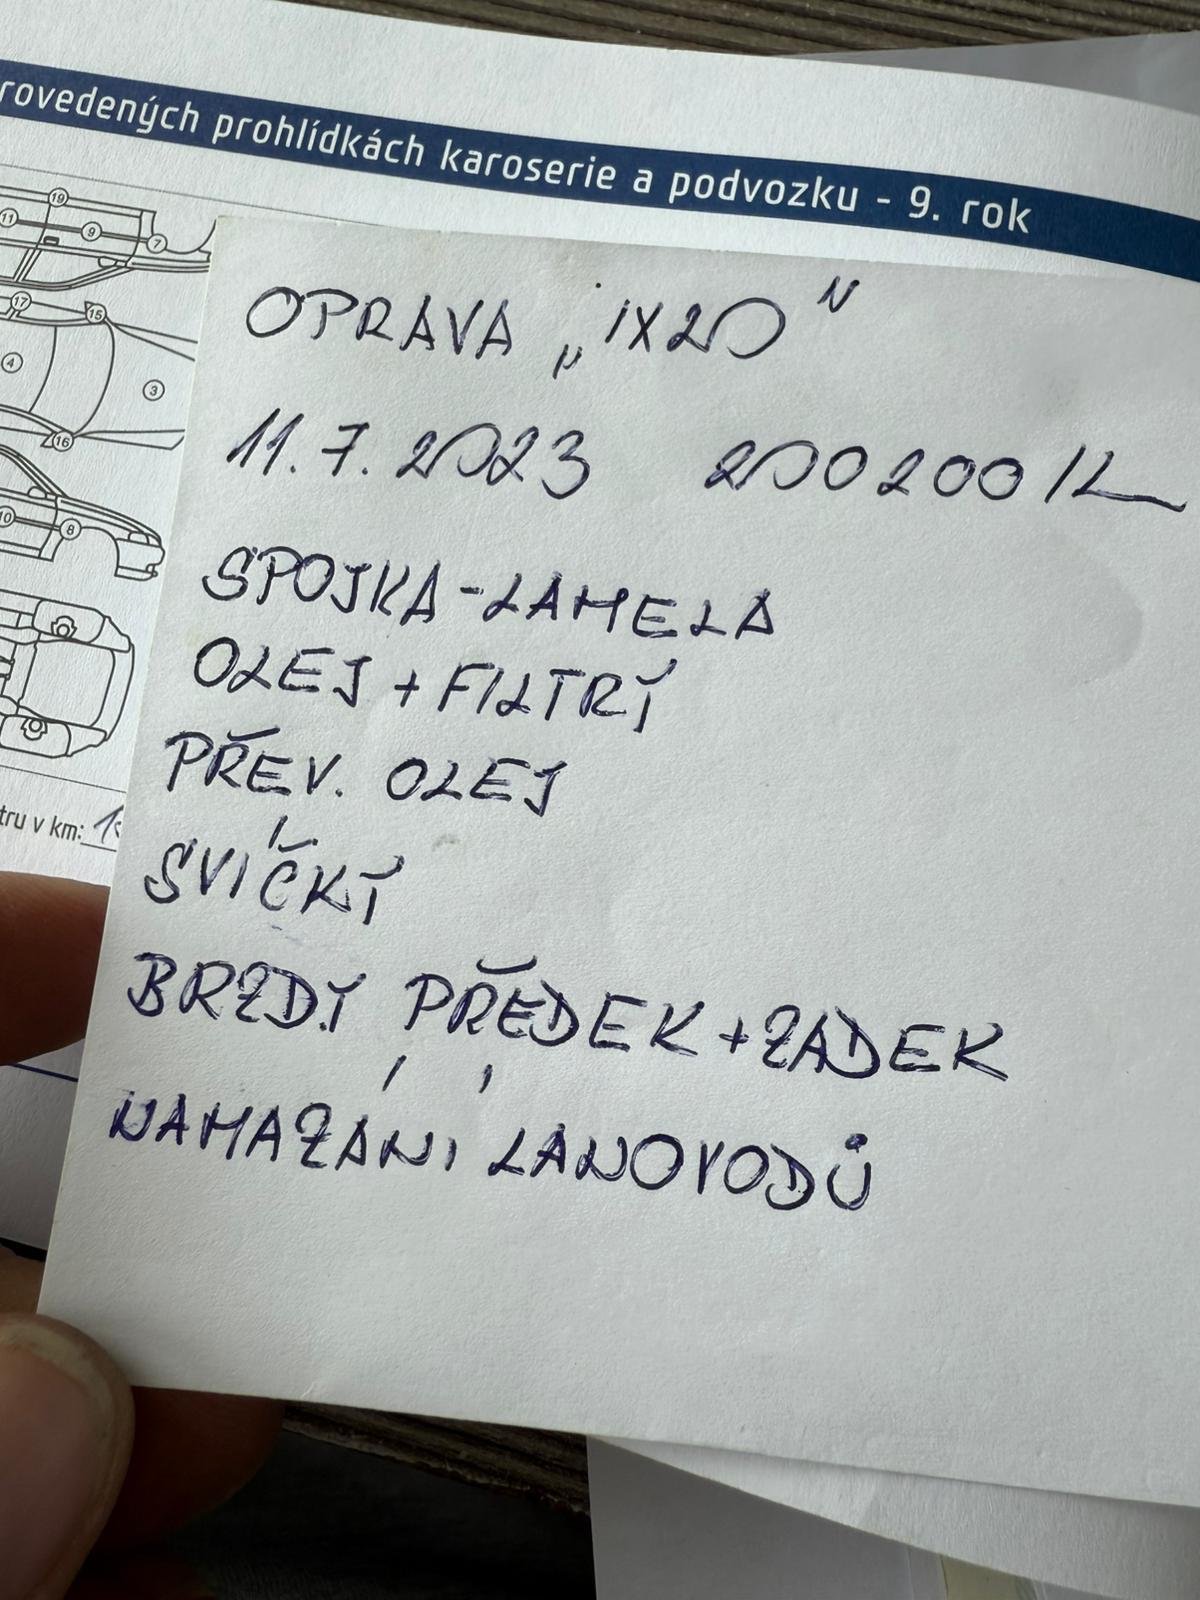 rovedených prohlídkách karoserie a podvozku - 9. rok
19
11 9 7
17 15
4 3
16
10 8
tru v km:
OPRAVA „IX20"
11.7.2023 200200 KM
SPOJKA-LAMELA
OLEJ + FILTRY
PŘEV. OLEJ
SVÍČKY
BRZDY PŘEDEK + ZADEK
NAMAZÁNÍ LANOVODŮ